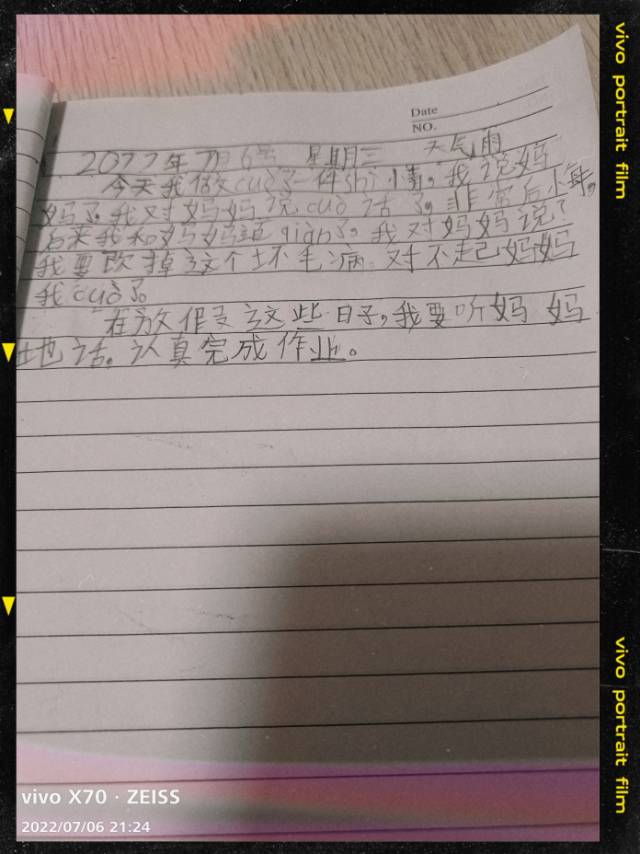 Date
NO.
2022年7月6号 星期三 天气雨
今天我做cuò了一件shì情。我说妈
妈了。我对妈妈说cuò话了。非常后
后来我和妈妈道qiàn了。我对妈妈说
我要改掉这个坏毛病。对不起妈妈
我cuò了。
在放假这些日子,我要听妈妈
地话。认真完成作业。
vivo X70 · ZEISS
2022/07/06 21:24
vivo portrait film
vivo portrait film